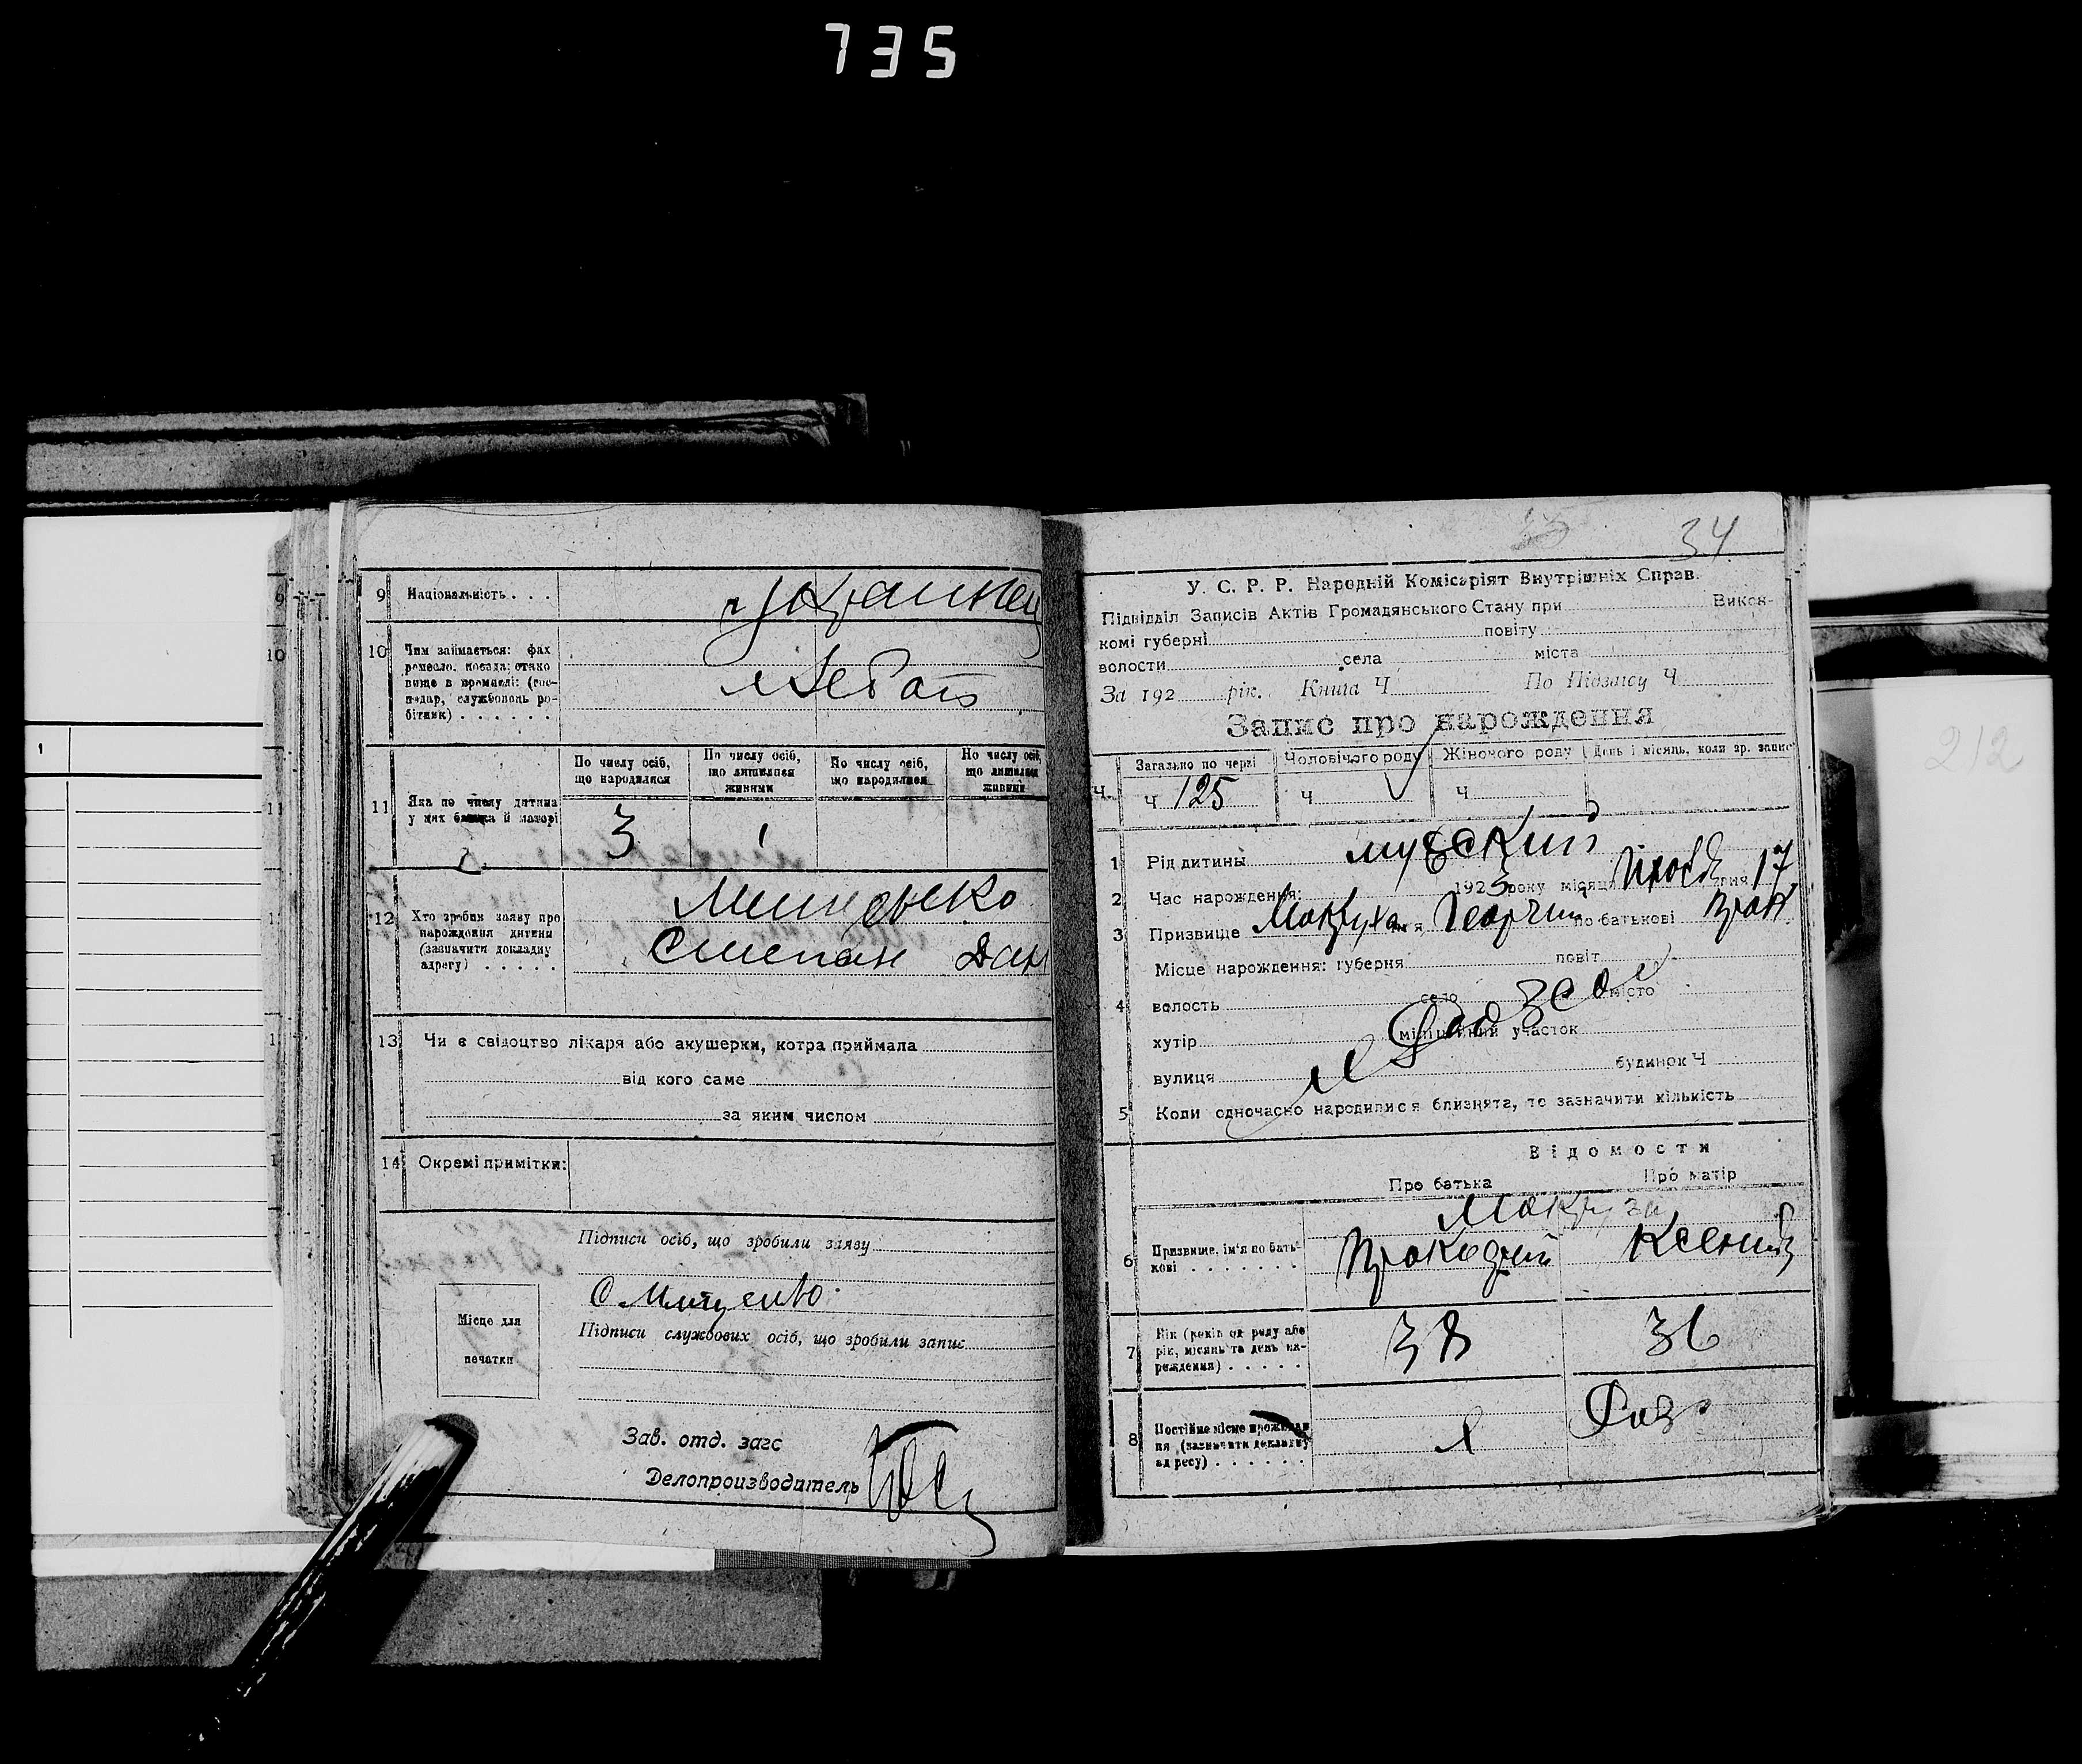 735
9 Національність . . . Украинец
10 Чим займається: фах
ремесло, посада: стано
вище в промислі: (гос-
подар, службовець ро-
бітник) . . . . . .
11 Яка по числу дитина
у цих батька й матері
По числу осіб,
що народилися
По числу осіб,
що лишилися
живими
По числу осіб,
що народилися
По числу осіб,
що лишилися
живими
3 1
12 Хто зробив заяву про
нарождення дитини
(зазначити докладну
адресу) . . . . .
Степан Дан
13 Чи є свідоцтво лікаря або акушерки, котра приймала
від кого саме
за яким числом
14 Окремі примітки:
Підписи осіб, що зробили заяву
Місце для
печатки
Підписи службових осіб, що зробили запис
Зав. отд. загс
Делопроизводитель
34
У. С. Р. Р. Народній Комісаріят Внутрішніх Справ.
Підвідділ Записів Актів Громадянського Стану при Викон-
комі губерні повіту
волости села міста
За 192 рік. Книга Ч По Підзапису Ч
Запис про нарождення
Загально по черзі Чоловічого роду Жіночого роду День і місяць, коли зр. запис
Ч. Ч 125 Ч Ч
1 Рід дитини мужский
2 Час нарождення: 1923 року місяця дня 17
3 Призвище Макруха ім'я Георгий по батькові Прок
Місце нарождення: губерня повіт
4 волость село місто
хутір міліційний участок
вулиця будинок Ч
5 Коли одночасно народилися близнята, то зазначити кількість
Відомости
Про батька Про матір
6 Призвище, ім'я по бать-
кові . . . . . . .
Прокофий Ксения
7 Вік (років од роду або
рік, місяць та день на-
рождення) . . . . .
38 36
8 Постійне місце проживан
ня (зазначити докладну
адресу) . . . . . .
212